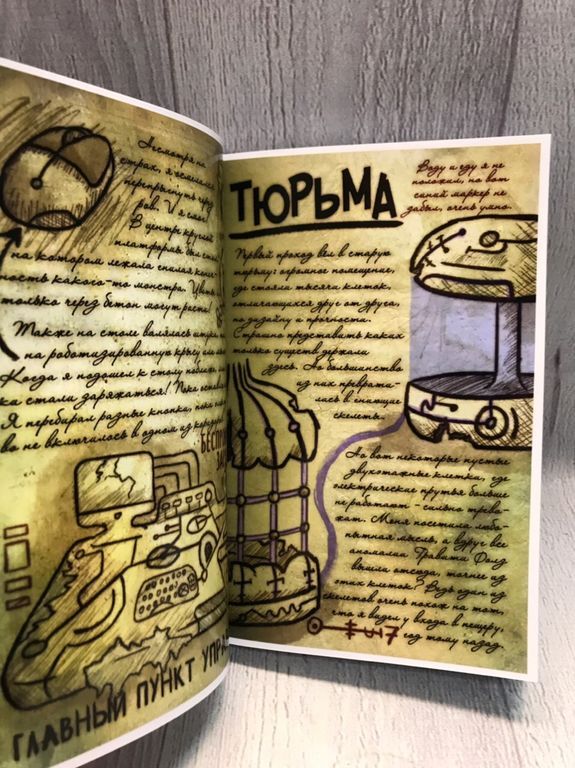 Несмотря на
страх, я
перепрыгнуть через
ров. И я смог!
В центре круглой
платформы был стол,
на котором лежала спелая
ность какого-то монстра.
только через бетон могут расти!
Также на столе валялась
на роботизированную крысу
Когда я подошел к столу
ка стали заряжаться! Пока
Я перебирал разные кнопки, пока
во не включилось в одном из
ГЛАВНЫЙ ПУНКТ УПРА
ТЮРЬМА
Воду и еду я не
положил, но вот
синий маркер не
забыл, очень умно.
Первый проход вел в старую
тюрьму: огромное помещение,
где стояли тысячи клеток,
отличающихся друг от друга,
по дизайну и прочности.
Страшно представить каких
только существ держали
здесь. Но большинство
из них преврати-
лись в гниющие
скелеты.
Но вот некоторые пустые
двухэтажные клетки, где
электрические прутья больше
не работают - сильно трево-
жат. Меня посетила любо-
пытная мысль, а вдруг все
аномалии Гравити Фолз
вышли отсюда, точнее из
этих клеток? Ведь один из
скелетов очень похож на тот,
что я видел у входа в пещеру,
год тому назад.